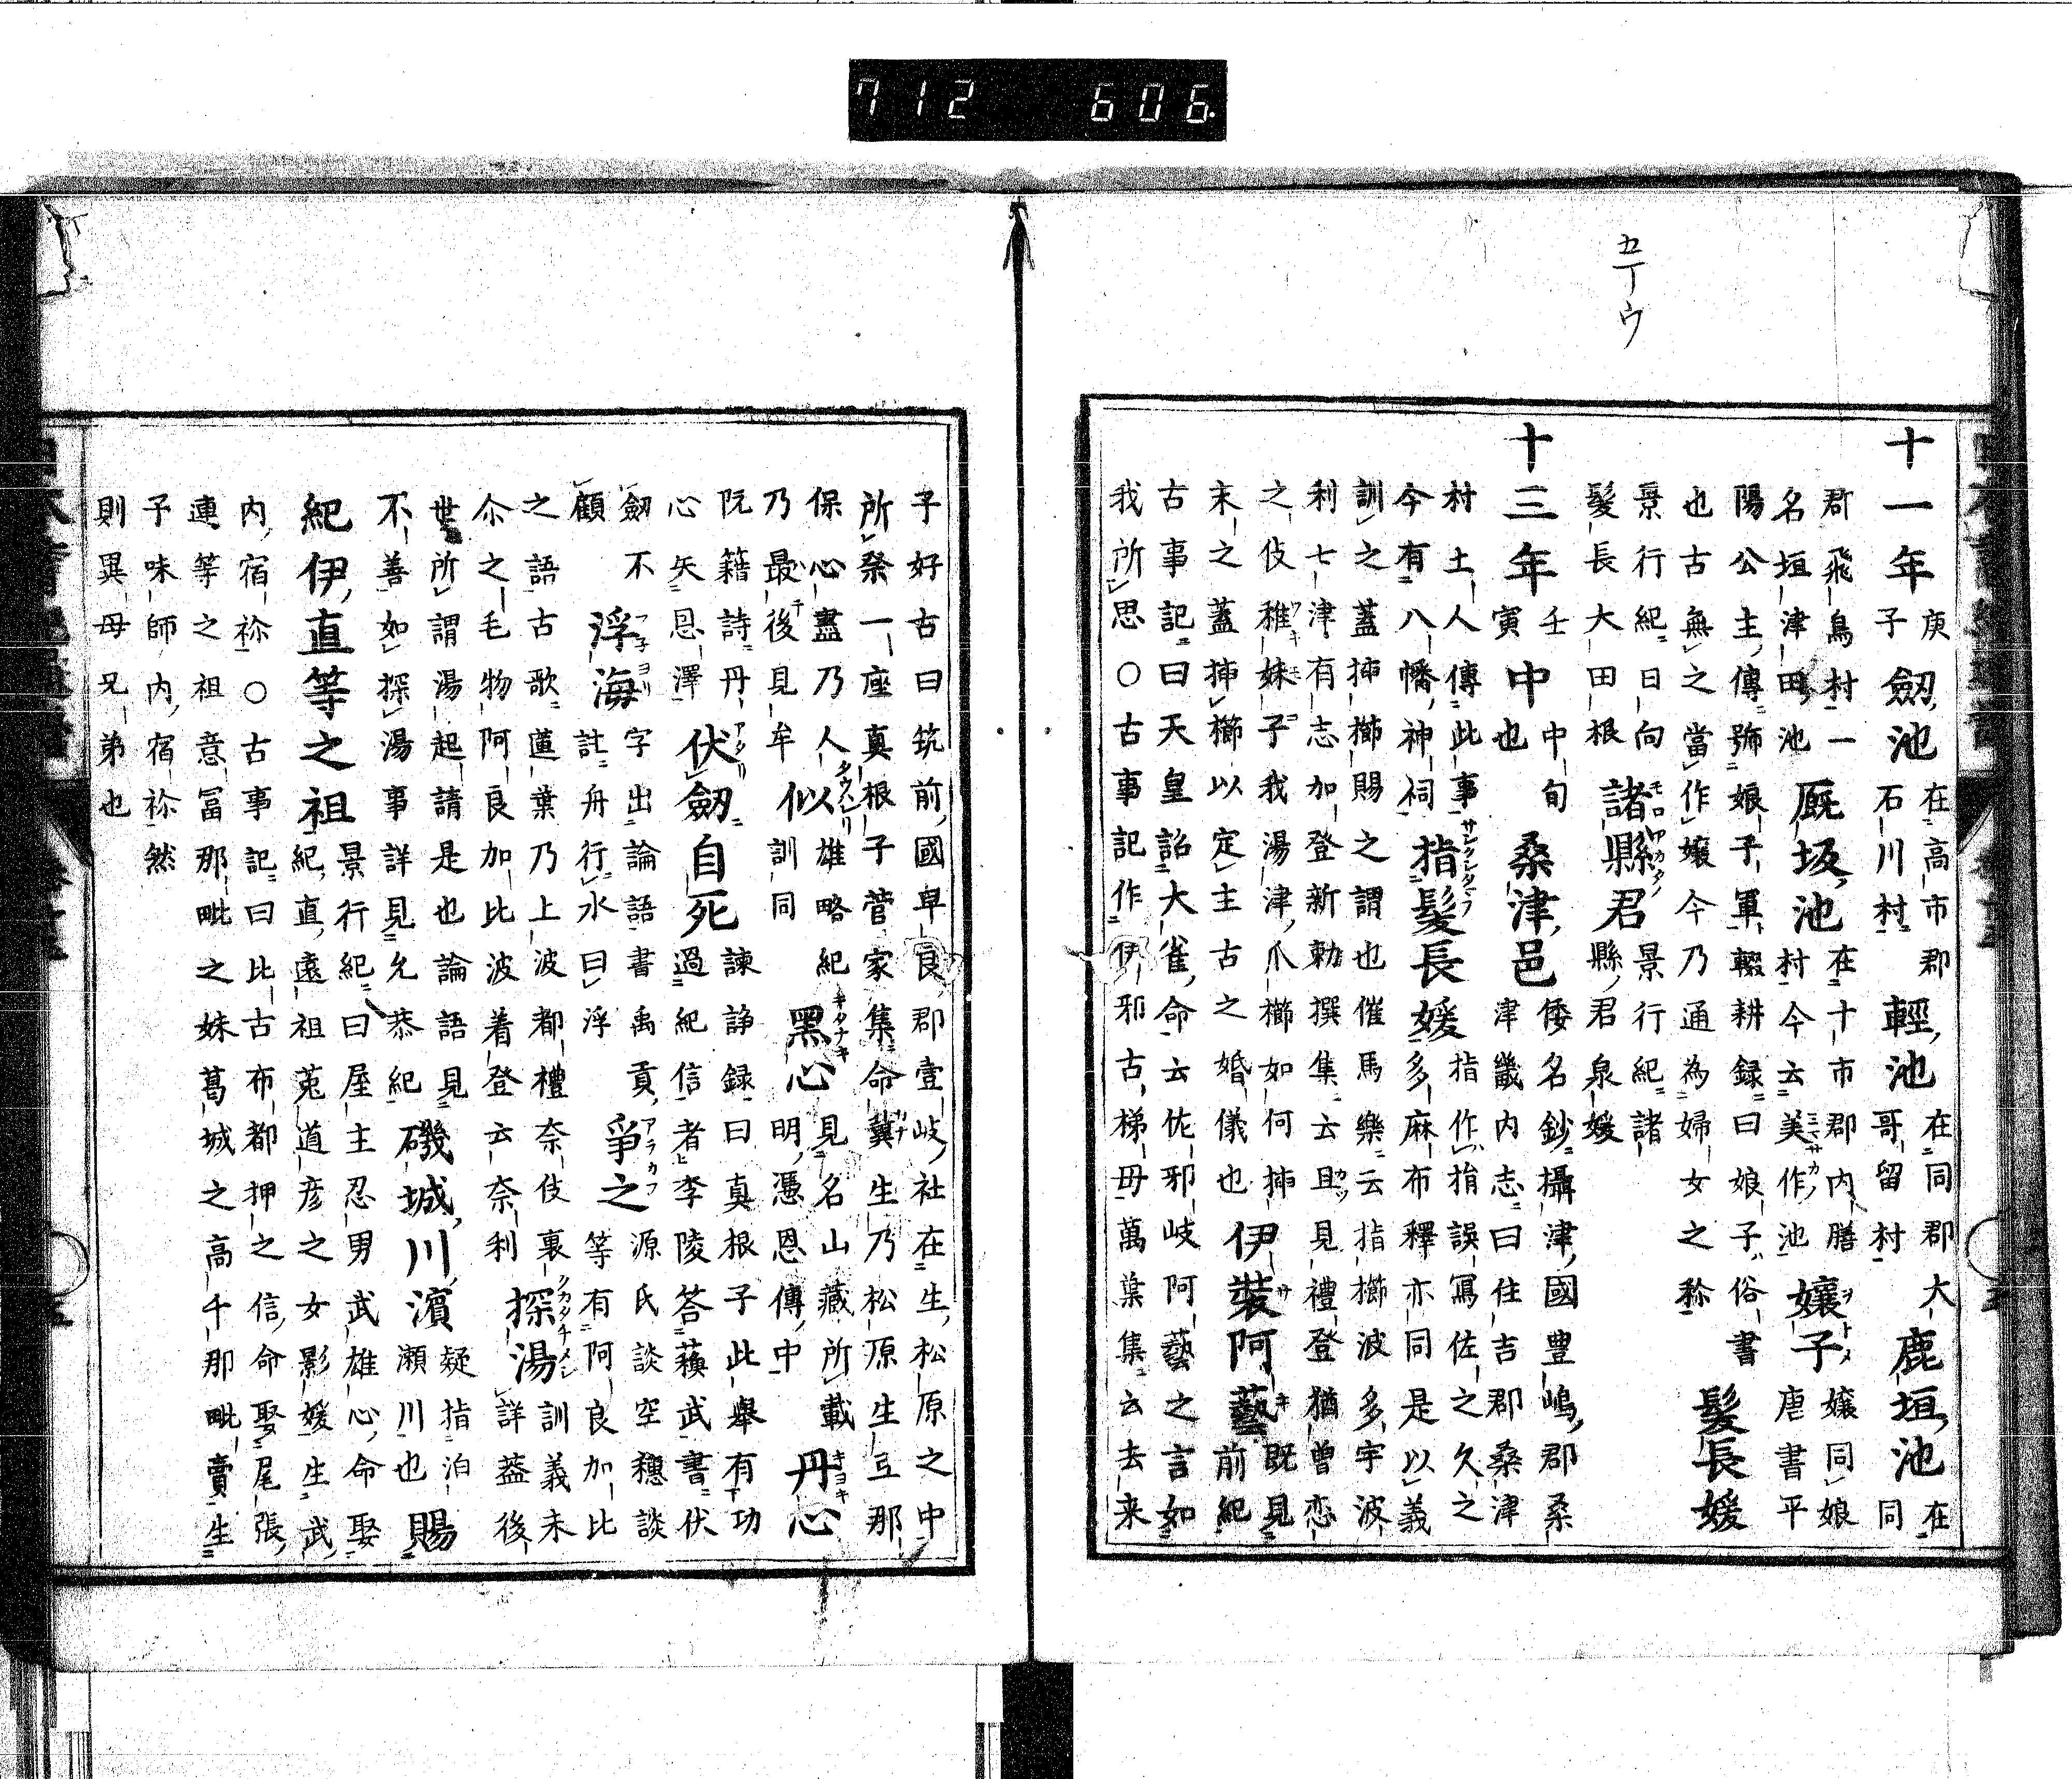 712 606
五丁ウ
十一年庚子劔池在高市郡石川村輕池在同郡大哥留村鹿垣池在同
郡飛鳥村一名垣津田池厩坂池在十市郡内膳村今云美作池孃子孃同娘唐書平
陽公主傳號娘子軍輟耕録曰娘子俗書也古無之當作孃今乃通為婦女之稱髮長媛
景行紀曰向髮長大田根諸縣君景行紀諸縣君泉媛
十三年壬寅中中旬也桑津邑倭名鈔攝津國豊嶋郡桑津畿内志曰住吉郡桑津
村土人傳此事今有八幡神祠指髮長媛指作指誤冩佐之久之多麻布釋亦同是以義
訓之蓋挿櫛賜之謂也催馬樂云指櫛波多宇波利七津有志加登新勅撰集云且見禮登猶曽恋
之伎稚妹子我湯津爪櫛如何挿末之蓋挿櫛以定主古之婚儀也伊裝阿藝既見前紀
古事記曰天皇詔大雀命云佐邪岐阿藝之言如我所思〇古事記作伊邪古梯毋萬葉集云去来
子好古曰筑前國早良郡壹岐社在生松原之中所祭一座真根子菅家集命冀生乃松原生亙那
保心盡乃人乃最後見牟似雄略紀訓同黑心見名山藏所載明憑恩傳中丹心
阮籍詩丹心矢恩澤伏劔自死諫諍録曰真根子此舉有功過紀信者李陵答蘇武書伏
劔不顧浮海字出論語書禹貢註舟行水曰浮爭之源氏談空穗談等有阿良加比
之語古歌蓮葉乃上波都禮奈伎裏尒之毛物阿良加比波着登云奈利探湯訓義未詳蓋後
世所謂湯起請是也論語見不善如探湯事詳見允恭紀磯城川濱疑指泊瀬川也賜
紀伊直等之祖景行紀曰屋主忍男武雄心命娶紀直遠祖菟道彦之女影媛生武
内宿祢〇古事記曰比古布都押之信命娶尾張連等之祖意冨那毗之妹葛城之高千那毗賣生
子味師内宿祢然則異毋兄弟也